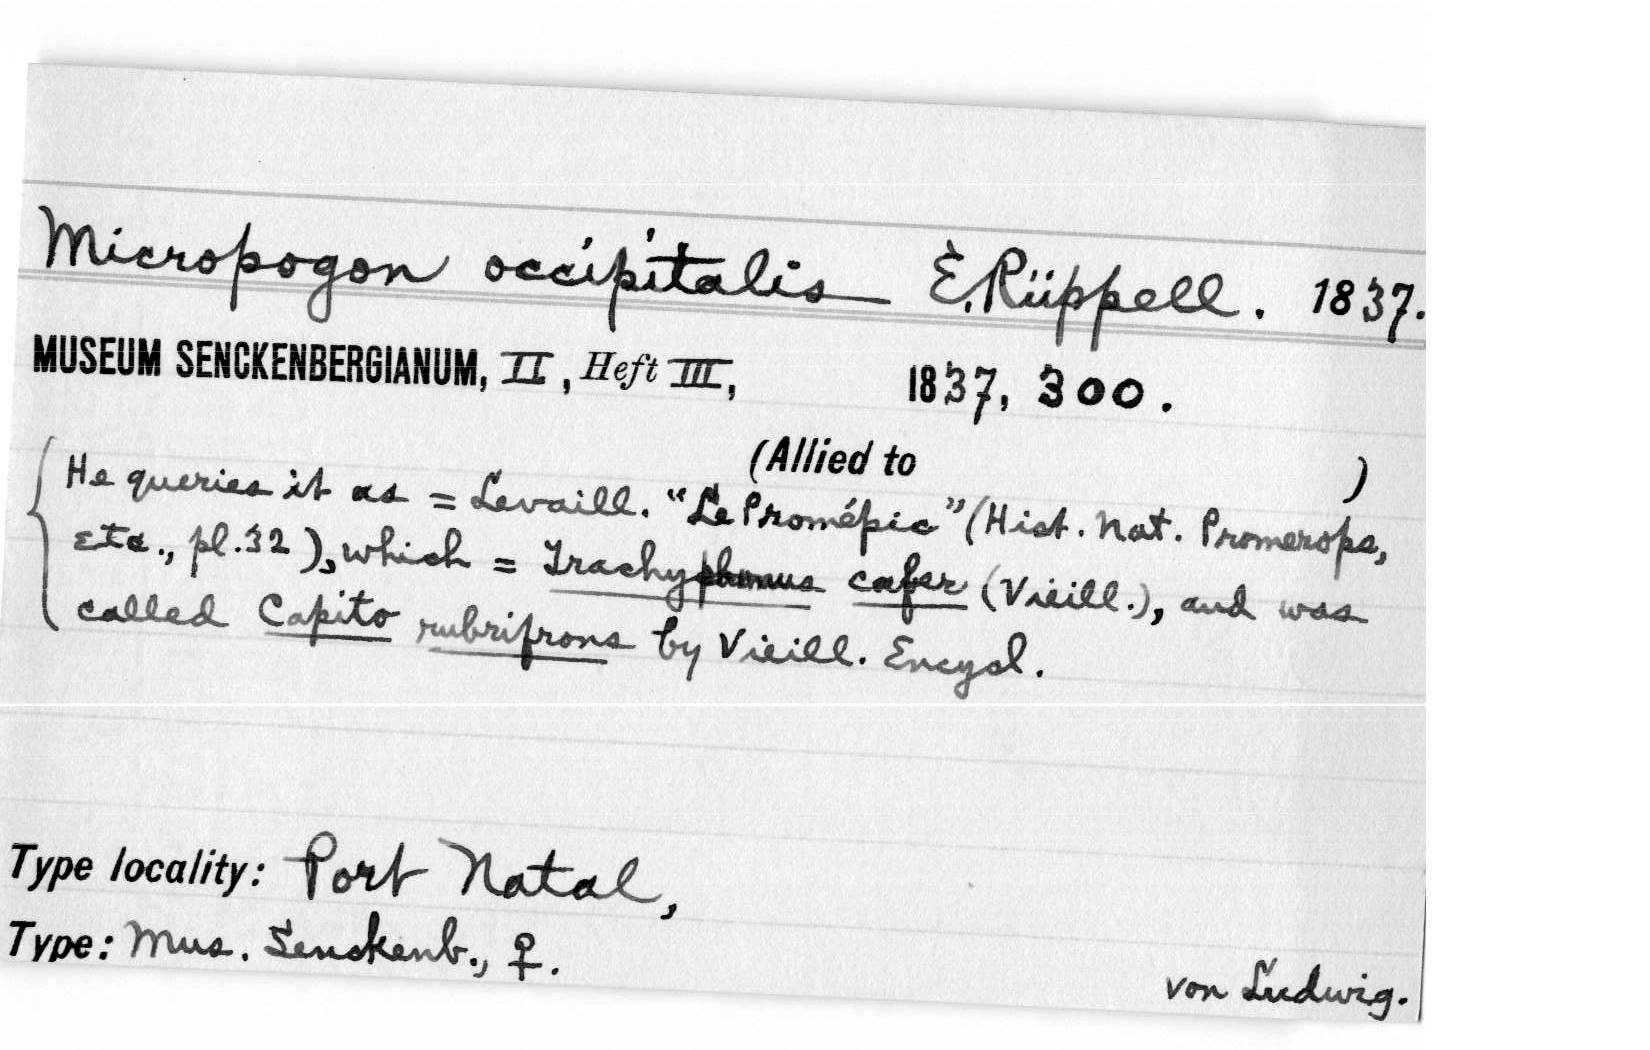 Micropogon occipitalis E. Rüppell. 1837.
MUSEUM SENCKENBERGIANUM, II, Heft III, 1837, 300.
(Allied to )
He queries it as = Levaill. "Le Promépic" (Hist. Nat. Promerops,
etc., pl. 32), which = Trachyphonus cafer (Vieill.), and was
called Capito rubrifrons by Vieill. Encycl.
Type locality: Port Natal,
Type: Mus. Senckenb., ♀.
von Ludwig.